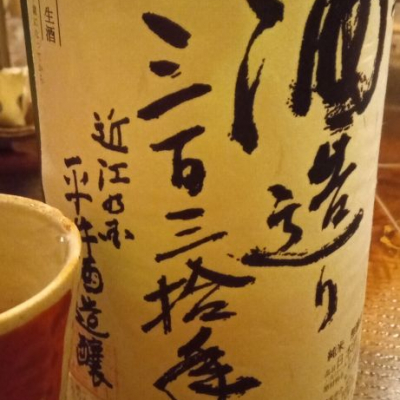 酒造り
三百三拾年
近江の国
平井酒造醸
生酒
純米